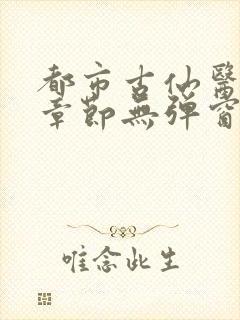 都市古仙醫
章節無彈窗
唯念此生